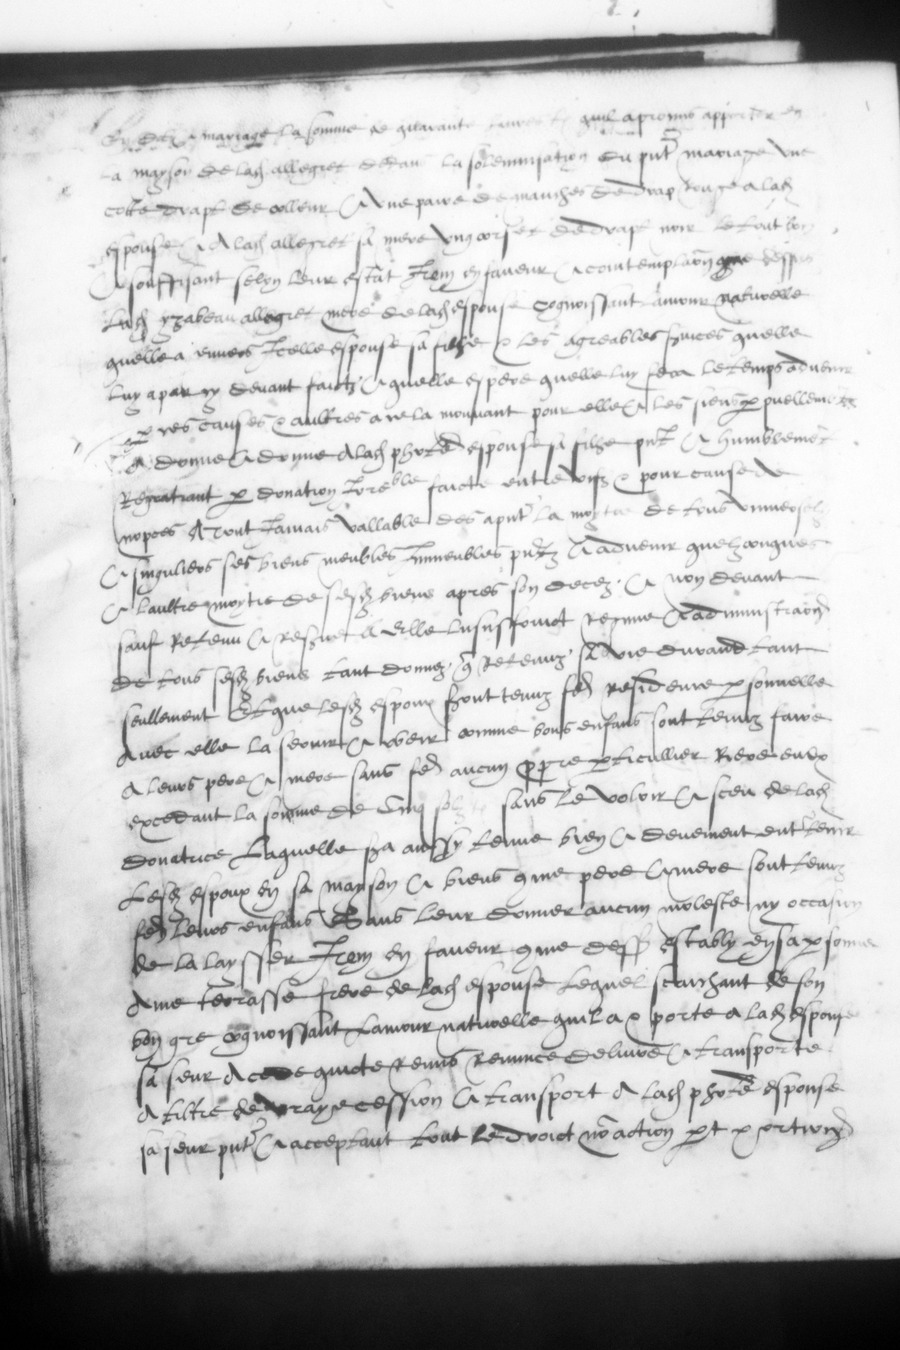 mariage la somme de quarante livres quil a promis apporter en
la mayson de lad allegret dedans la solemnisation du pnt mariage une
cotte drapt de colleur & une paire de manches de drap rouge a lad
espouse & a lad allegret sa mere ung corset de drapt noir le tout bon
& souffisant selon leur estat Item en faveur & contemplaon que dessus
lad yzabeau allegret mere de lad espouse cognoissant lamour naturelle
quelle a envers Icelle espouse sa filhe & les agreables services quelle
luy a par cy devant faictz & quelle espere quelle luy fera le temps advenir
& pr ces causes & aultres a ce la mouvant pour elle & les siens perpuellement
a donne & donne a lad espouse sa filhe pnt & humblement
Regratiant par donation faicte entre vifz & pour cause de
nopces a tout Jamais vallable des a pnt la moytie de tous universelz
& singuliers ses biens meubles Immeubles pntz & advenir quelzconques
& laultre moytie de sesd biens apres son decez & non devant
sauf Retenu & Reserve a elle lusuffruict regime & administraon
de tous sesd biens tant donnez que Retenuz sa vie durand tant
seullement Et que lesd espoux seront tenuz fe residence personnelle
avec elle la servir & obeir comme bons enfans sont tenuz faire
a leurs pere & mere sans fe aucun propre particullier Riere eulx
excedant la somme de cinq solz sans le voloir & sceu de lad
donatrice Laquelle sera aussy tenue bien & deuement entretenir
Lesd espoux en sa mayson & biens comme pere & mere sont tenuz
fe leurs enfans Sans leur donner aucun moleste ny occasion
de la laysser Item en faveur comme dess estably en sa personne
Ame terrasse frere de lad espouse Lequel scaichant de son
bon gre cognoissant lamour naturelle quil a & porte a lad espouse
sa seur a cede quicte remis renunce delivre & transporte
a tiltre de vraye cession & transport a lad espouse
sa seur pnte & acceptant tout le droict nom action part & portion